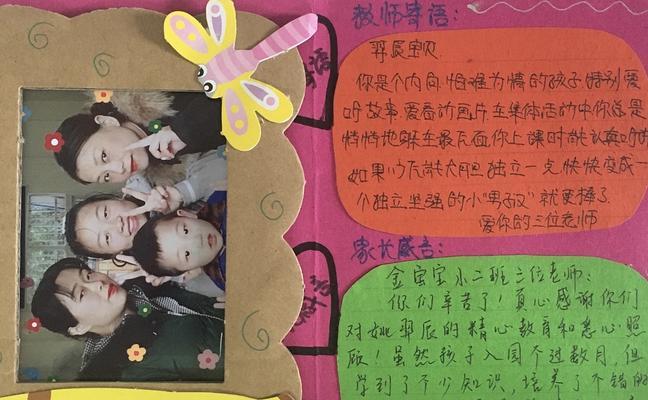 教师寄语：
羿辰宝贝
你是个内向、怕难为情的孩子，特别爱
听故事，爱看动画片，在集体活动中你总是
悄悄地躲在最后面，你上课时能认真听讲
如果以后能大胆独立一点，快快变成一
个独立坚强的小“男子汉”就更棒了
爱你的三位老师
家长感言：
金宝宝小二班三位老师：
你们辛苦了！真心感谢你们
对姚羿辰的精心教育和悉心照
顾！虽然孩子入园个过数月，但
学到了不少知识，培养了个错的